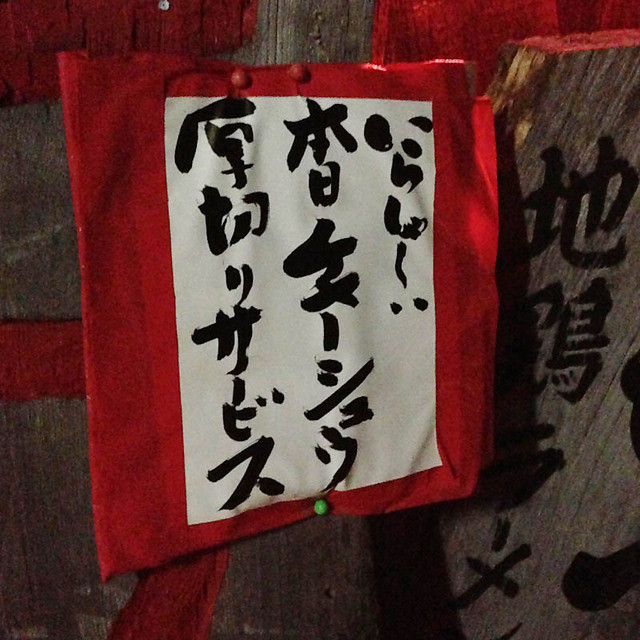 地鶏ラーメ
いらしゃ〜い
本日チャーシュウ
厚切りサービス